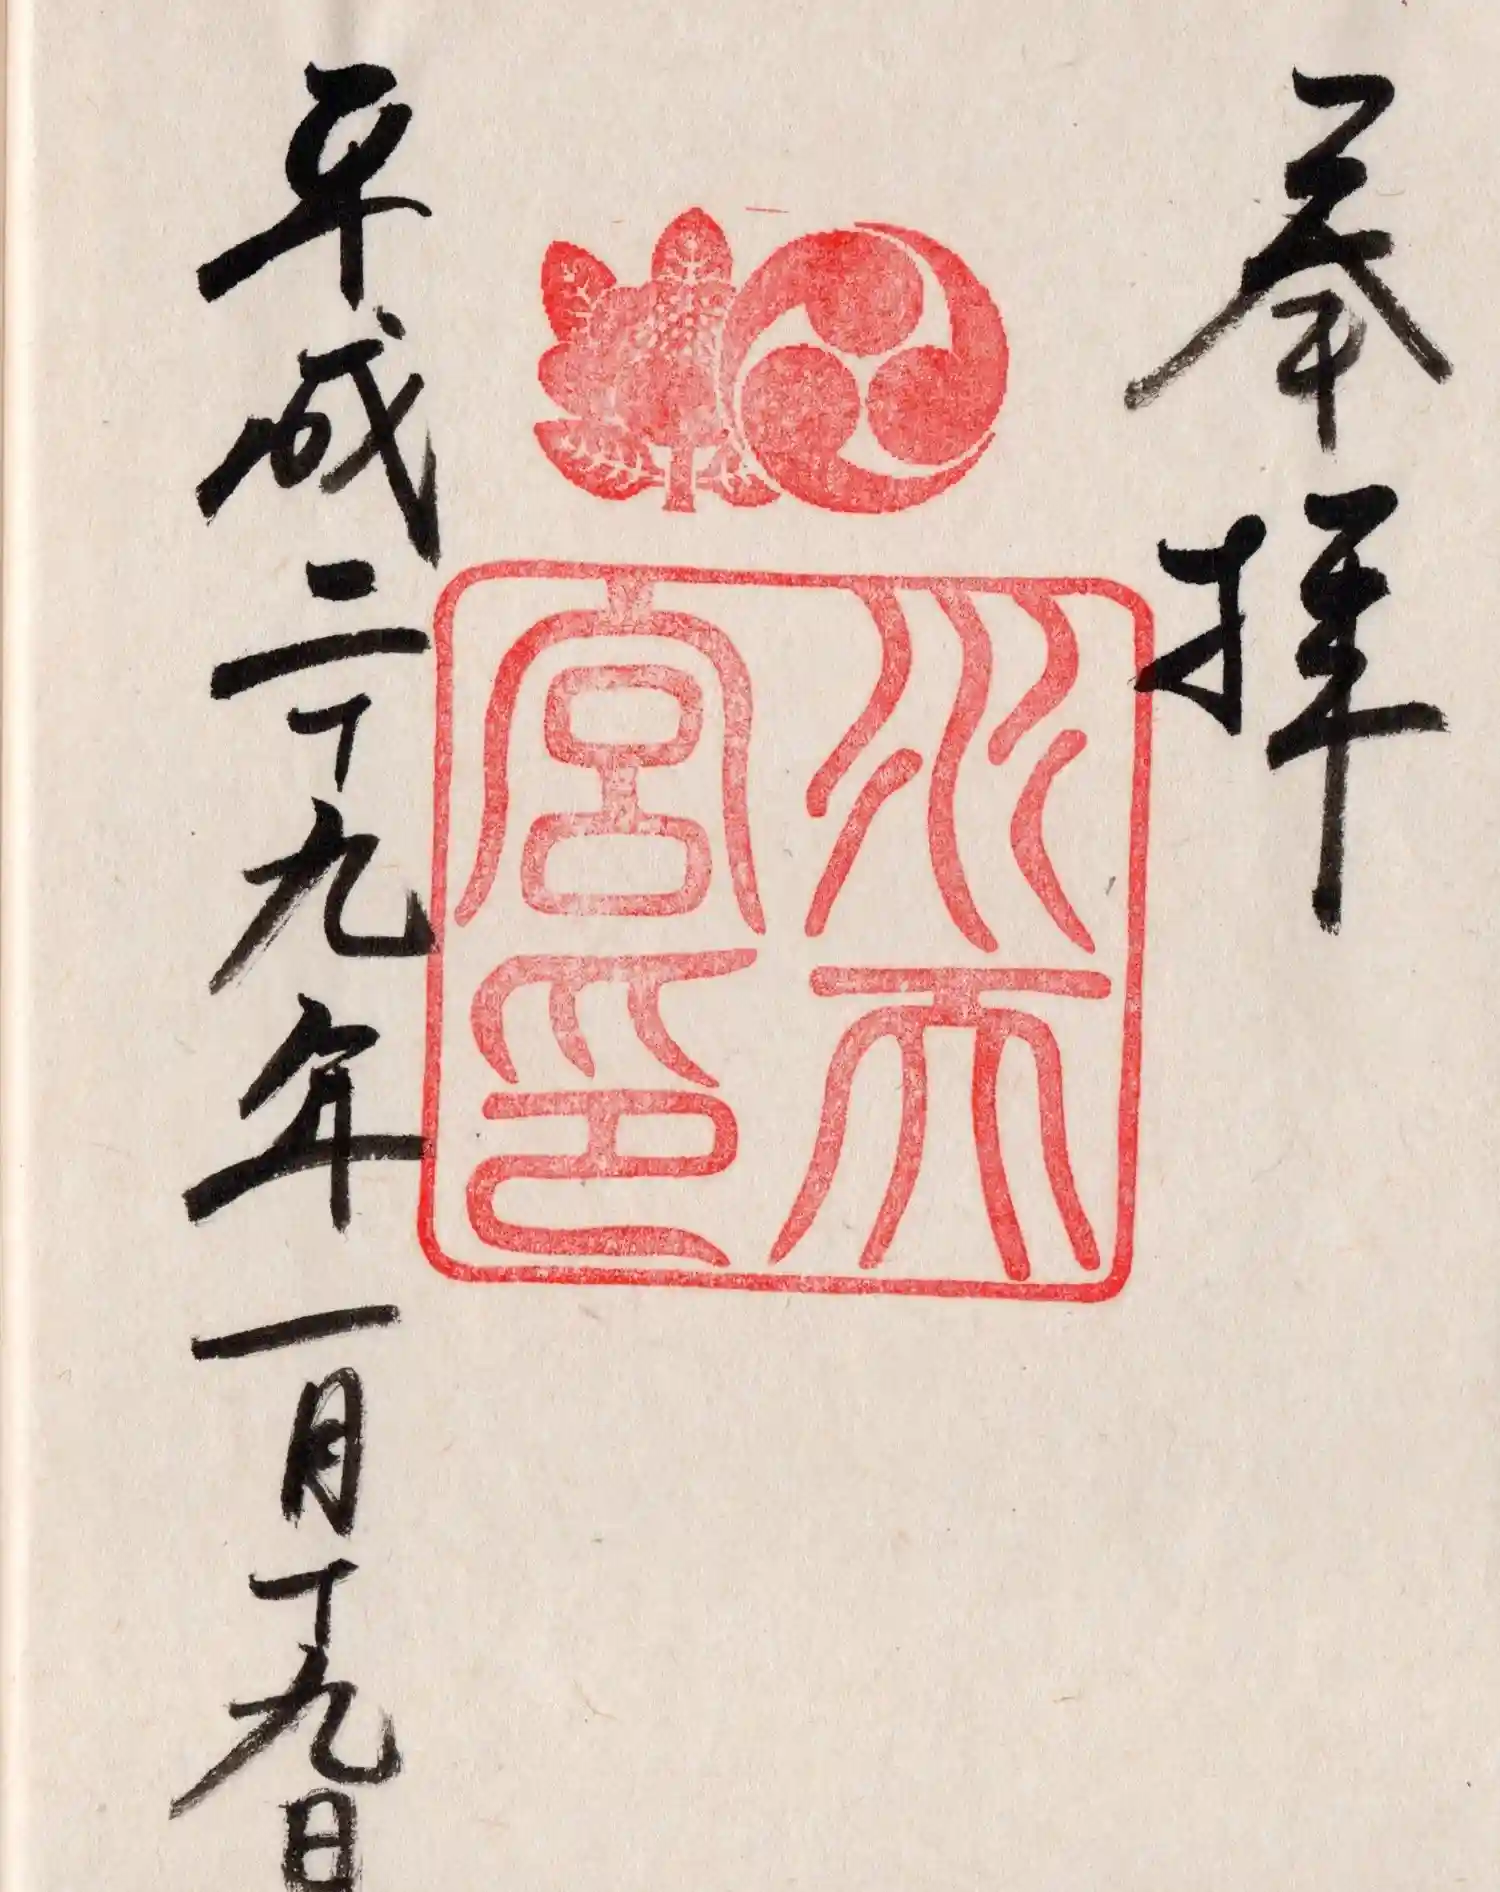 奉拝
水天
宮印
平成二十九年一月十九日